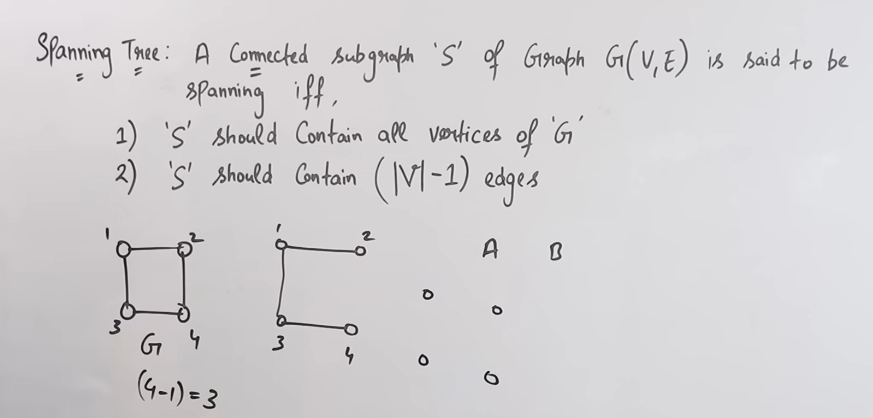 Spanning Tree: A Connected subgraph 'S' of Graph G(V,E) is said to be
spanning iff,
1) 'S' should Contain all vertices of 'G'
2) 'S' should Contain (|V|-1) edges
1 2 1 2 A B
3 4 3 4
G
(4-1)=3